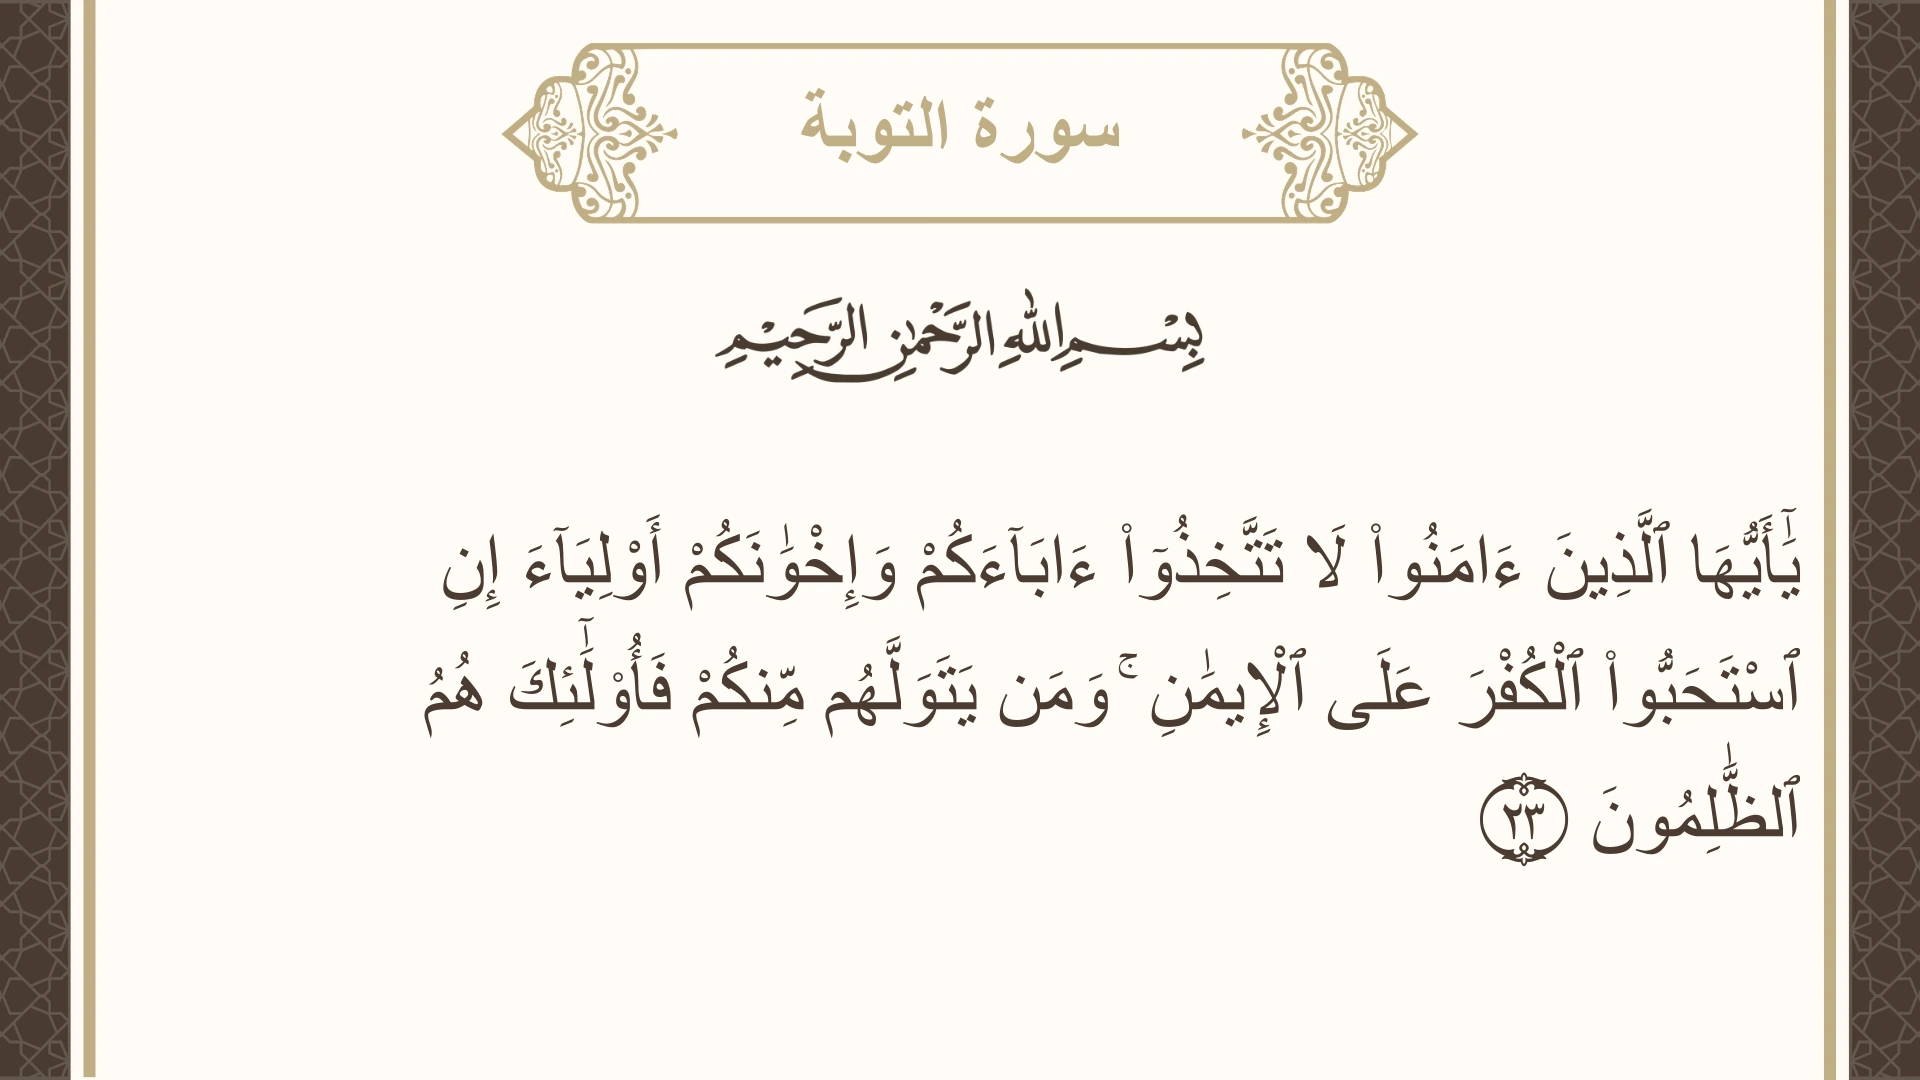 سورة التوبة
بِسْمِ اللهِ الرَّحْمٰنِ الرَّحِيْمِ
يَٰٓأَيُّهَا ٱلَّذِينَ ءَامَنُوا۟ لَا تَتَّخِذُوٓا۟ ءَابَآءَكُمْ وَإِخْوَٰنَكُمْ أَوْلِيَآءَ إِنِ
ٱسْتَحَبُّوا۟ ٱلْكُفْرَ عَلَى ٱلْإِيمَٰنِ ۚ وَمَن يَتَوَلَّهُم مِّنكُمْ فَأُو۟لَٰٓئِكَ هُمُ
ٱلظَّٰلِمُونَ ٢٣